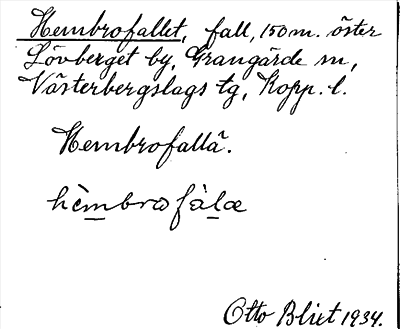 Hembrofallet, fall, 150 m. öster
Lövberget by, Grangärde sn,
Västerbergslags tg, Kopp. l.
Hembrofallä.
hèmbrω fàlæ
Otto Blixt 1934.